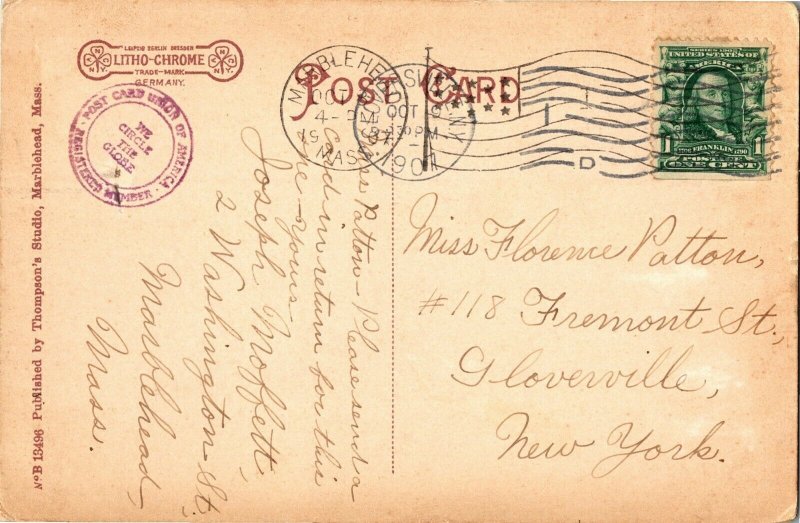 LEIPZIG BERLIN DRESDEN
LITHO-CHROME
TRADE-MARK
GERMANY.
POST CARD
POST CARD UNION OF AMERICA
REGISTERED MEMBER
WE
CIRCLE
THE
GLOBE
MARBLEHEAD
OCT
4- PM
MASS.
OCT
PM
N.Y.
1907
D
SERIES 1902
UNITED STATES OF
AMERICA
1 FRANKLIN 1790 1
POSTAGE
ONE CENT
Miss Florence Patton,
#118 Fremont St.,
Gloverville,
New York.
Miss Patton - Please send a
card in return for this
one - yours -
Joseph Moffett,
2 Washington St.
Marblehead,
Mass.
No B 13496 Published by Thompson's Studio, Marblehead, Mass.